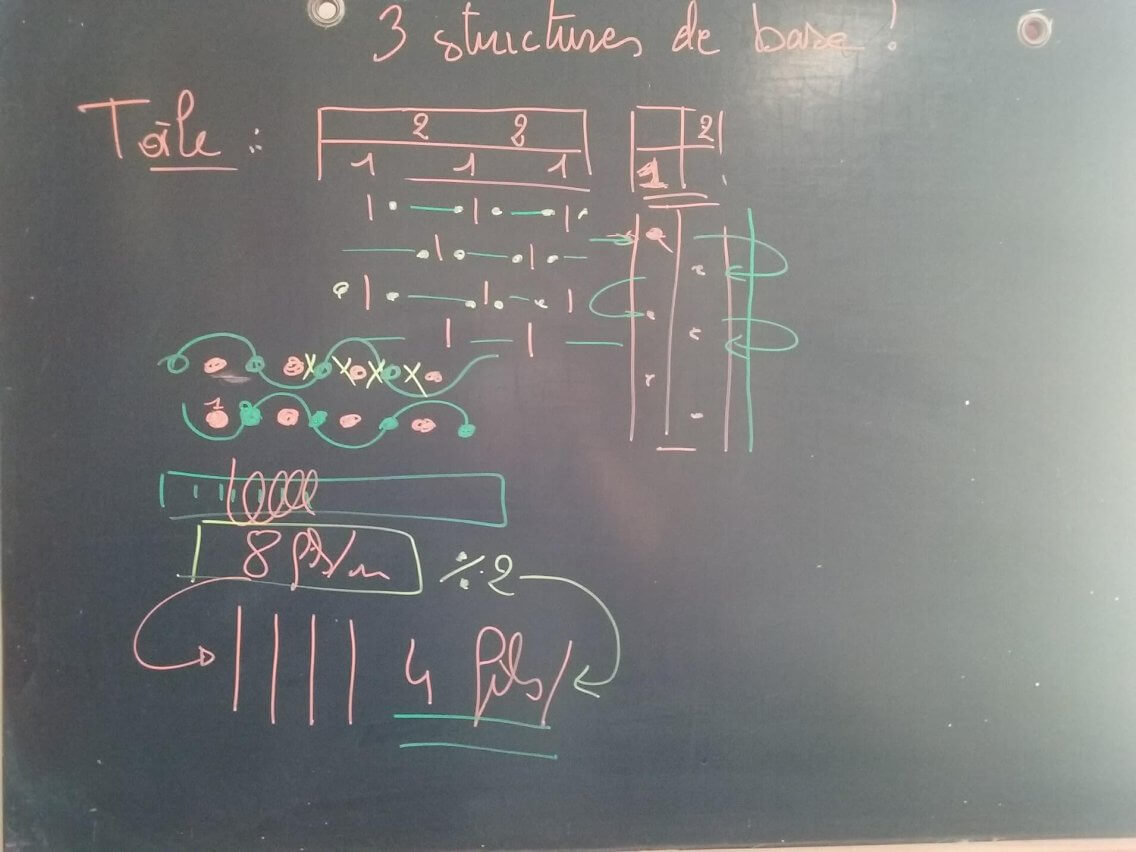 3 structures de base !
Toile :
2 2 2
1 1 1 1
1
8 fils/
÷ 2
4 fils/